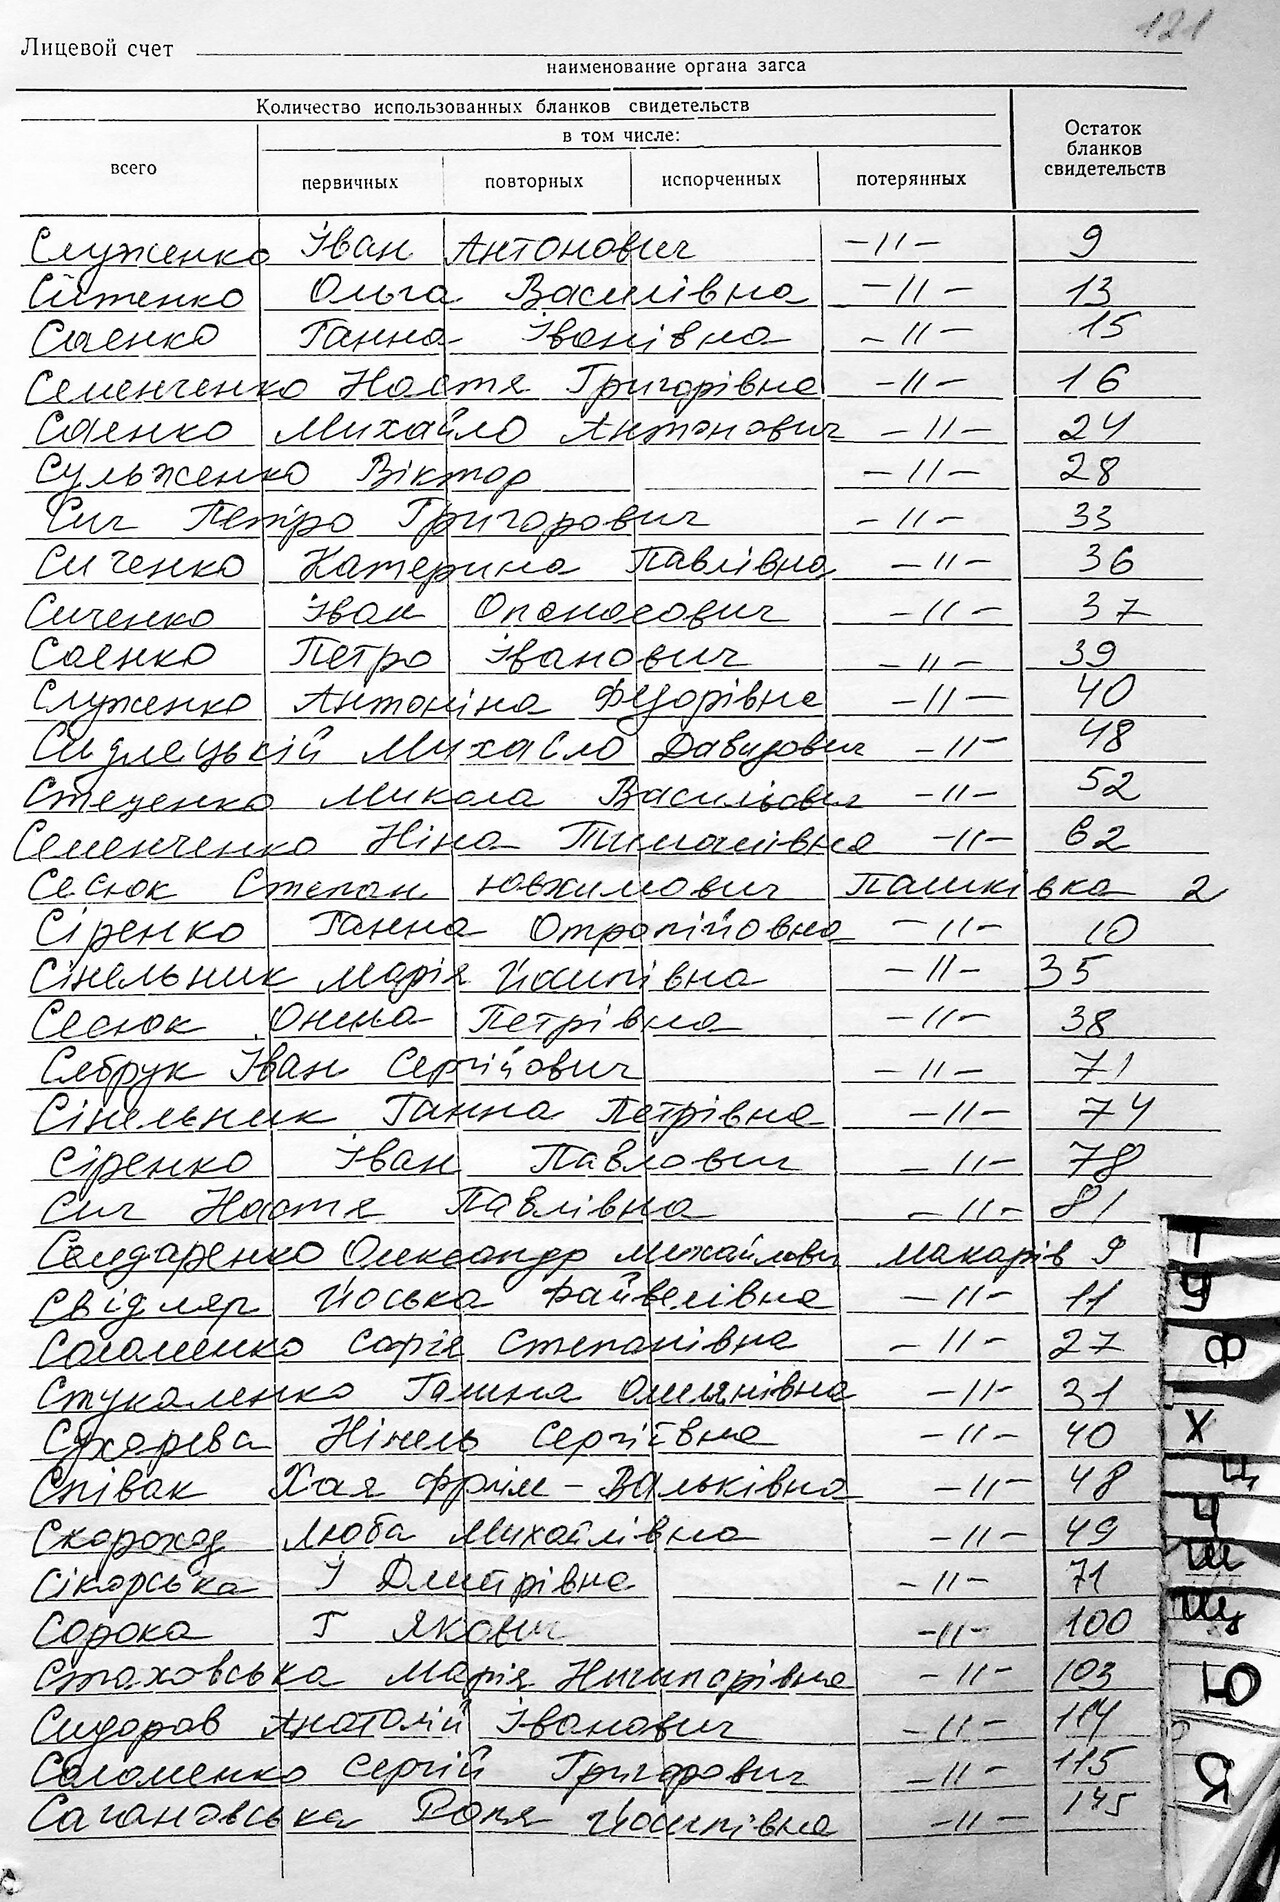 121
Лицевой счет
наименование органа загса
Количество использованных бланков свидетельств
в том числе:
всего
первичных
повторных
испорченных
потерянных
Остаток бланков свидетельств
Служенко Іван Антонович -//- 9
Ольга Василівна -//- 13
Саенко Ганна Іванівна -//- 15
Семенченко Настя Григорівна -//- 16
Саенко Михайло Антонович -//- 24
Сульженко Віктор -//- 28
Сич Петро Григорович -//- 33
Сиченко Катерина Павлівна -//- 36
Сиченко Іван Опанасович -//- 37
Саєнко Петро Іванович -//- 39
Служенко Антоніна Федорівна -//- 40
Сидлецькій Михайло Давидович -//- 48
Стеценко Микола Васильович -//- 52
Семенченко Ніна -//- 62
Сесюк СтепанЮвхимович Пашківка 2
Сіренко Ганна -//- 10
Сінельник Марія Йосипівна -//- 35
Сесюк Петрівна -//- 38
Сябрук Іван Сергійович -//- 71
Сінельник Ганна Петрівна -//- 74
Сіренко Іван Павлович -//- 78
Сич Настя Павлівна -//- 81
Олександр Михайлович Макарів 9
Свідляр Йоська Файвелівна -//- 11
Соломенко Софія Степанівна -//- 27
Стукаленко Галина Омелянівна -//- 31
Сухарева Нінель Сергіївна -//- 40
Співак Хая -//- 48
Скороход Люба Михайлівна -//- 49
Сікорська І Дмитрівна -//- 71
Сорока Г Якович -//- 100
Стаховська Марія Ничипорівна -//- 103
Сидоров Анатолій Іванович -//- 114
Соломенко Сергій Григорович -//- 115
Йосипівна -//- 145
Т
У
Ф
Х
Ц
Ч
Ш
Щ
Ю
Я